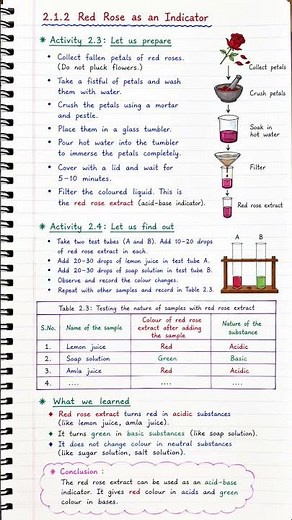 2.1.2 Red Rose as an Indicator
Activity 2.3: Let us prepare
• Collect fallen petals of red roses.
(Do not pluck flowers.)
• Take a fistful of petals and wash
them with water.
• Crush the petals using a mortar
and pestle.
• Place them in a glass tumbler.
• Pour hot water into the tumbler
to immerse the petals completely.
• Cover with a lid and wait for
5–10 minutes.
• Filter the coloured liquid. This is
the red rose extract (acid-base indicator).
Collect petals
Crush petals
Soak in
hot water
Filter
Red rose extract
Activity 2.4: Let us find out
• Take two test tubes (A and B). Add 10-20 drops
of red rose extract in each.
• Add 20-30 drops of lemon juice in test tube A.
• Add 20-30 drops of soap solution in test tube B.
• Observe and record the colour changes.
• Repeat with other samples and record in Table 2.3.
A B
Table 2.3: Testing the nature of samples with red rose extract
S.No. Name of the sample Colour of red rose extract after adding the sample Nature of the substance
1. Lemon juice Red Acidic
2. Soap solution Green Basic
3. Amla juice Red Acidic
4. .... .... ....
What we learned
♦ Red rose extract turns red in acidic substances
(like lemon juice, amla juice).
♦ It turns green in basic substances (like soap solution).
♦ It does not change colour in neutral substances
(like sugar solution, salt solution).
Conclusion :
The red rose extract can be used as an acid-base
indicator. It gives red colour in acids and green
colour in bases.